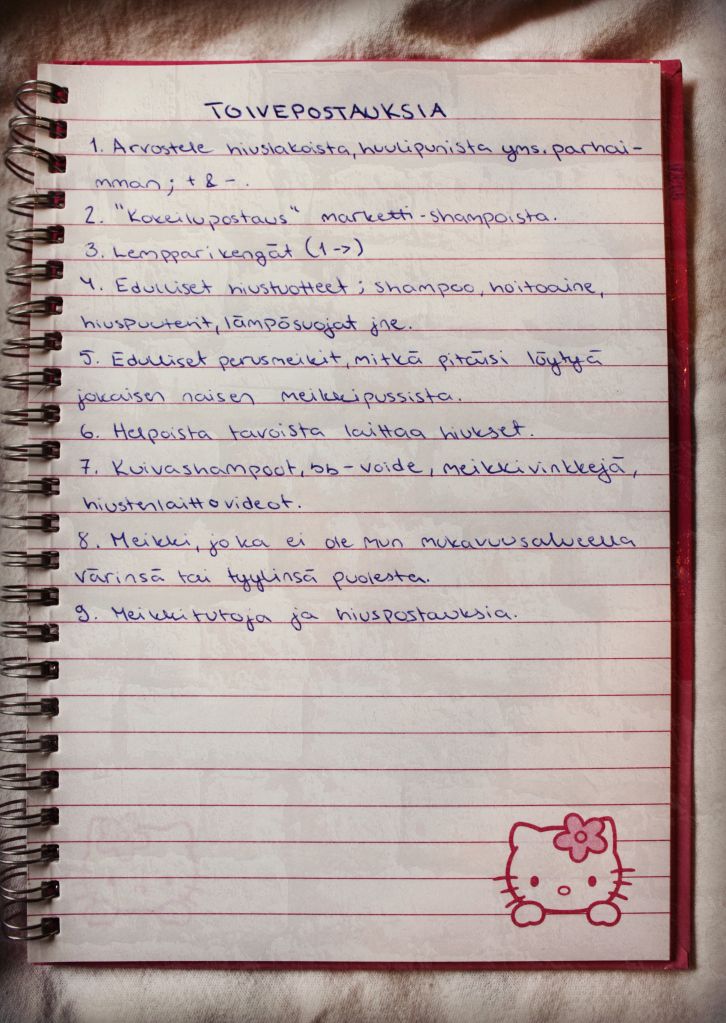 TOIVEPOSTAUKSIA
1. Arvostele hiuslakoista, huulipunista yms. parhai-
mman ; + & - .
2. "Kokeilupostaus" marketti-shampoista.
3. Lempparikengät (1->)
4. Edulliset hiustuotteet ; shampoo, hoitoaine,
hiuspuuterit, lämpösuojat jne.
5. Edulliset perusmeikit, mitkä pitäisi löytyä
jokaisen naisen meikkipussista.
6. Helpoista tavoista laittaa hiukset.
7. Kuivashampoot, bb-voide, meikkivinkkejä,
hiustenlaittovideot.
8. Meikki, joka ei ole mun mukavuusalueella
värinsä tai tyylinsä puolesta.
9. Meikkitutoja ja hiuspostauksia.